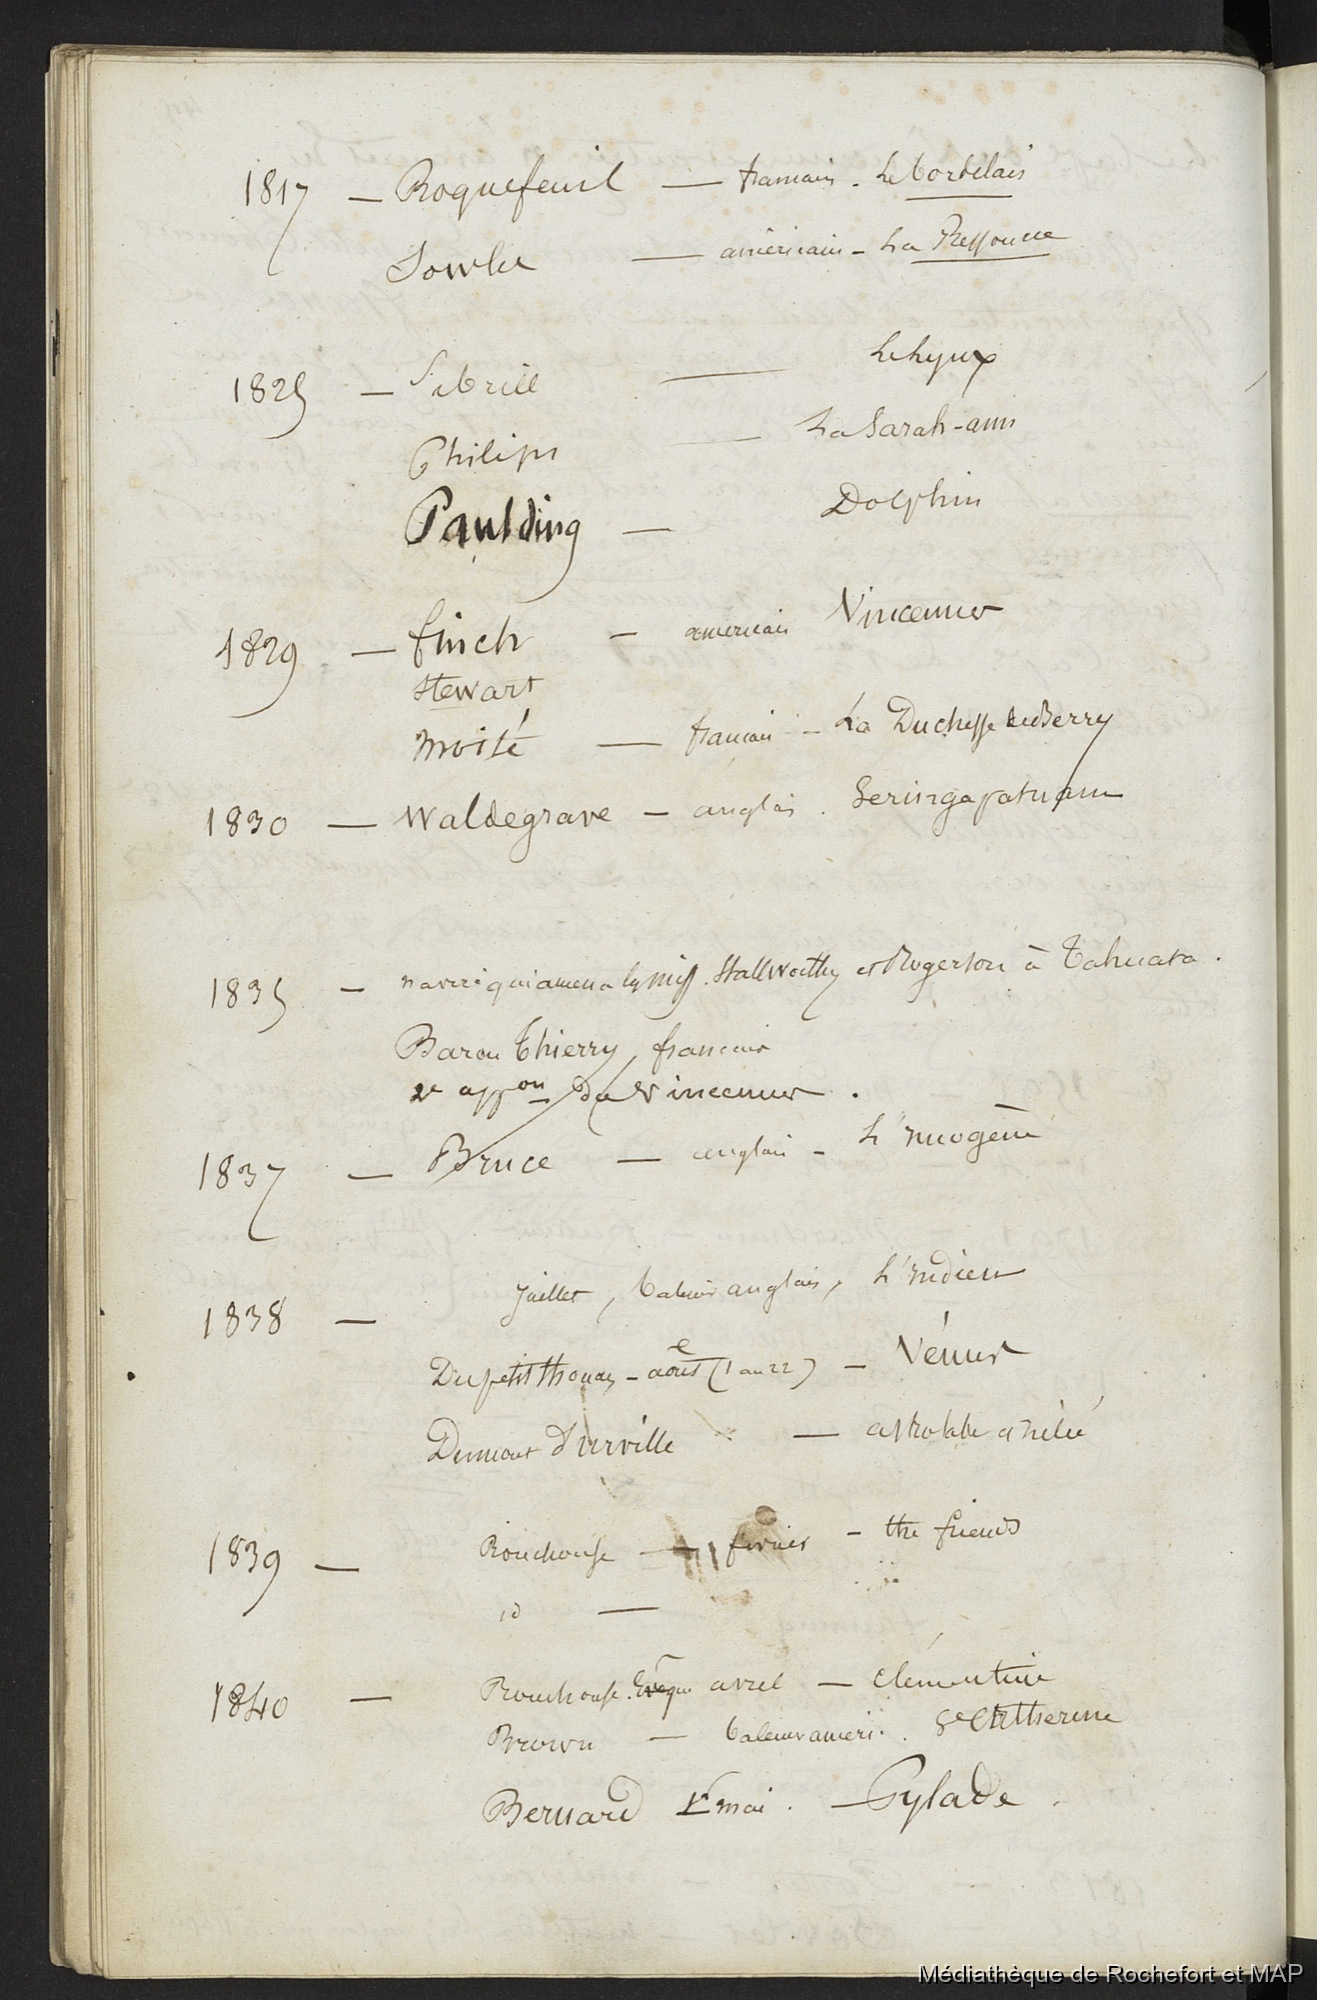 1817 — Roquefeuil — francais - Le bordelais
Sowle — américain - La Ressource
1825 — Sibrill — Le Lynx
Philips — La Sarah-ann
Paulding — Dolphin
1829 — finch — américain Vincennes
Stewart
moisé — francais - La Duchesse de Berry
1830 — Waldegrave — anglais . Seringapatnam
1835 — navire qui amena les miss. Stallworthy et Rogerson à Tahuata .
Baron Thierry, francais
2e appon du Vincennes .
1837 — Bruce — anglais - L'Imogène
1838 — juillet, baleinier anglais, L'Indien
Dupetit thouars - août (1 au 22) — Vénus
Dumont d'urville — astrolabe et zélée
1839 — Rouchouse — février - the friends
id —
1840 — Rouchouse. Evêque avril — Clémentine
Brown — baleinier améri. . Se Catherine
Bernard 1er mai . — Pylade .
Médiathèque de Rochefort et MAP